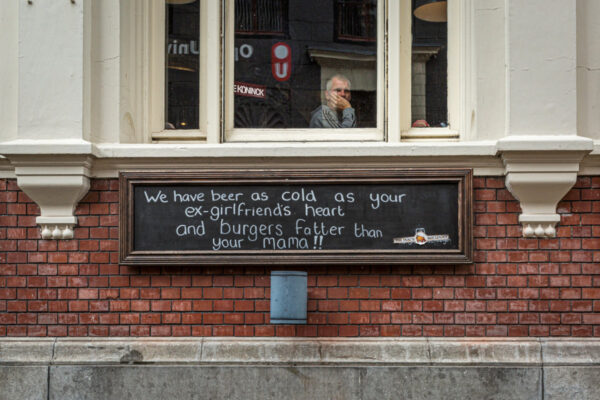 E KONINCK
We have beer as cold as your
ex-girlfriend's heart
and burgers fatter than
your mama!!